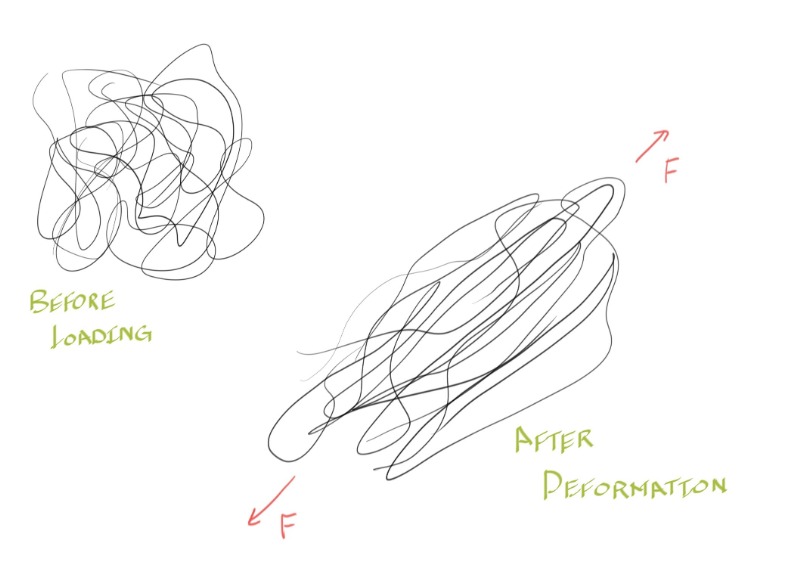 BEFORE
LOADING
F
F
AFTER
DEFORMATION